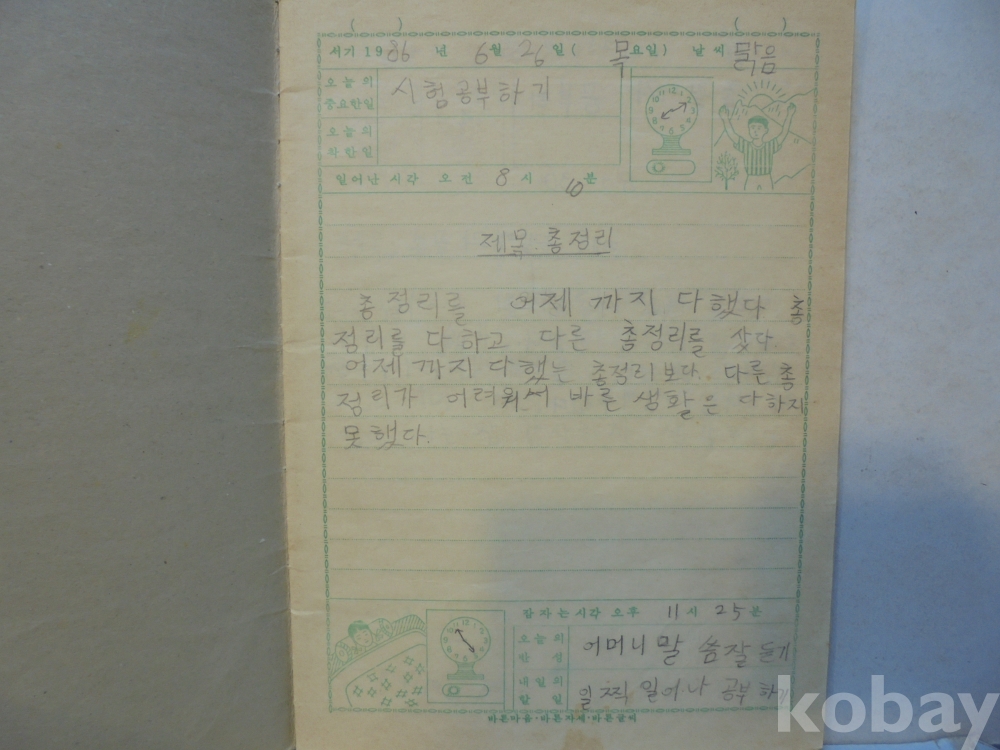 ( ) ( )
서기 1986 년 6월 26일 ( 목요일) 날씨 맑음
오늘의 중요한일 시험공부하기
오늘의 착한일
일어난 시각 오전 8시 10분
제목 총정리
총정리를 어제 까지 다했다 총
정리를 다하고 다른 총정리를 샀다.
어제 까지 다했는 총정리 보다. 다른 총
정리가 어려워서 바른 생활은 다하지
못했다.
잠자는시각 오후 11시 25분
오늘의 반성 어머니 말씀잘 듣기
내일의 할일 일찍 일어나 공부하기
바른마음·바른자세·바른글씨
kobay